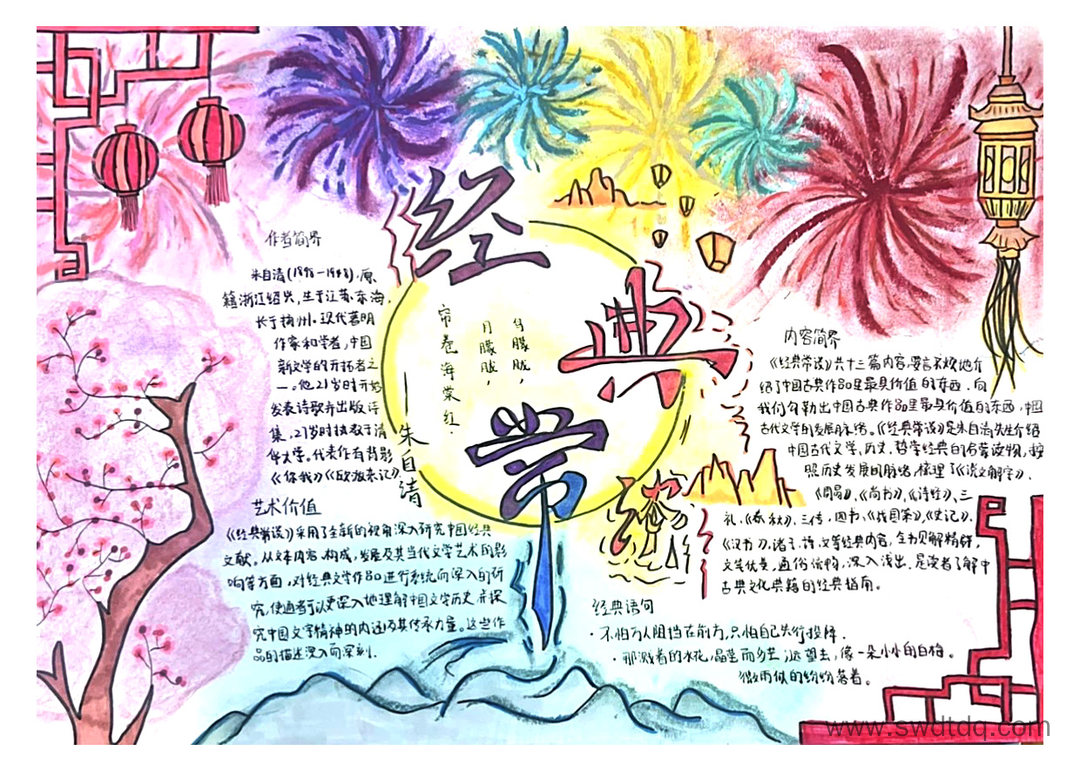 经典常谈
作者简界
朱自清(1898-1948),原
籍浙江绍兴,生于江苏东海,
长于扬州.现代著明
作家和学者,中国
新文学的开拓者之
一。他21岁时开始
发表诗歌并出版诗
集,27岁时执教于清
华大学。代表作有背影
《你我》《欧游杂记》
艺术价值
《经典常谈》采用了全新的视角深入研究中国经典
文献。从文本内容,构成,发展及其当代文学艺术的影
响等方面,对经典文学作品进行系统而深入的研
究,使读者可以更深入地理解中国文学历史,并探
究中国文学精神的内涵及其传承力量。这些作
品的描述深入而深刻.
月朦胧,
月朦胧,
帘卷海棠红.
——朱自清
内容简界
《经典常谈》共十三篇内容,要言不烦地介
绍了中国古典作品里最具价值的东西.向
我们勾勒出中国古典作品里最具价值的东西,中国
古代文学的发展脉络。《经典常谈》是朱自清先生介绍
中国古代文学,历史,哲学经典的启蒙读物,按
照历史发展的脉络,梳理了《说文解字》,
《周易》,《尚书》,《诗经》,三
礼,《春秋》,三传,四书,《战国策》,《史记》,
《汉书》,诸子,诗,文等经典内容,全书见解精辟,
文笔优美,通俗流畅,深入浅出,是读者了解中
古典文化典籍的经典指南。
经典语句
·不怕万人阻挡在前方,只怕自己先行投降.
·那溅着的水花,晶莹而多芒;远望去,像一朵小小的白梅。
微雨似的纷纷落着。
www.swdtdq.com